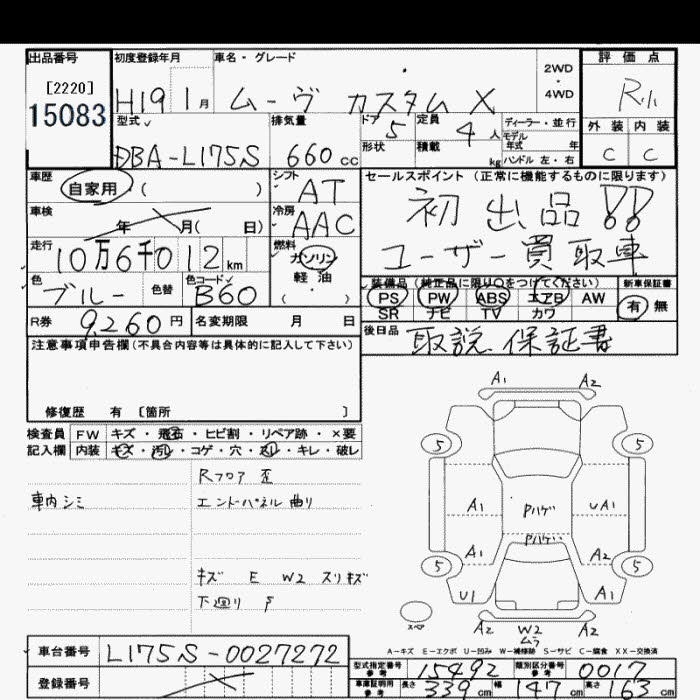 出品番号 初度登録年月 車名・グレード 評価点
[2220] H19 1月 ムーヴ カスタム X 2WD・4WD
15083
型式 排気量 ドア 5 定員 4人 ディーラー・並行 外装 内装
形状 積載 kg モデル年式 年 ハンドル 左・右
DBA-L175S 660cc C C
車歴 自家用・( ) シフト AT セールスポイント(正常に機能するものに限ります)
車検 年 月( 日) 冷房 AAC 初出品!!
走行 10万6千012km 燃料 ガソリン 軽油 ( ) ユーザー買取車
色 ブルー 色替 色コード B60
装備品(純正品に限り○をつけてください) 新車保証書
PS PW ABS エアB AW 有・無
SR ナビ TV カワ
R券 9,260円 名変期限 月 日 後日品 取説.保証書
注意事項申告欄(不具合内容等は具体的に記入して下さい)
修復歴 有 〔箇所 〕
検査員 FW キズ・飛石・ヒビ割・リペア跡・×要
記入欄 内装 キズ・汚れ・コゲ・穴・スレ・キレ・破レ
Rフロア 歪
車内シミ エンドパネル曲り
キズ E W2 スリキズ
下廻り S
A1 A2
5 5
A1 Pハゲ UA1
Pハゲ
A1 A2
5 5
U1 A1
スペア A2 W2 A2
ムラ
A-キズ E-エクボ U-凹み W-補修跡 S-サビ C-腐食 XX-交換済
車台番号 L175S-0027272
登録番号
型式指定番号 参考 15492 類別区分番号 参考 0017
車庫証明用 参考 長さ 339cm 幅 147cm 高さ 163cm